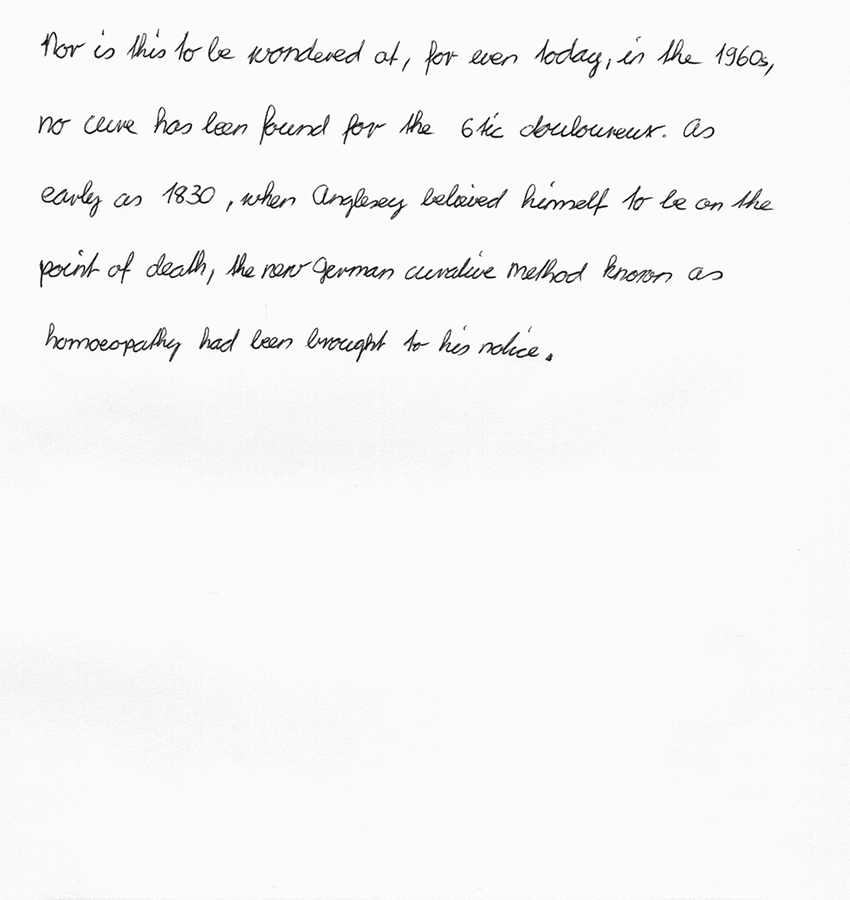 Nor is this to be wondered at, for even today, in the 1960s,
no cure has been found for the 6 tic douloureux. As
early as 1830, when Anglesey believed himself to be on the
point of death, the new German curative method known as
homoeopathy had been brought to his notice.